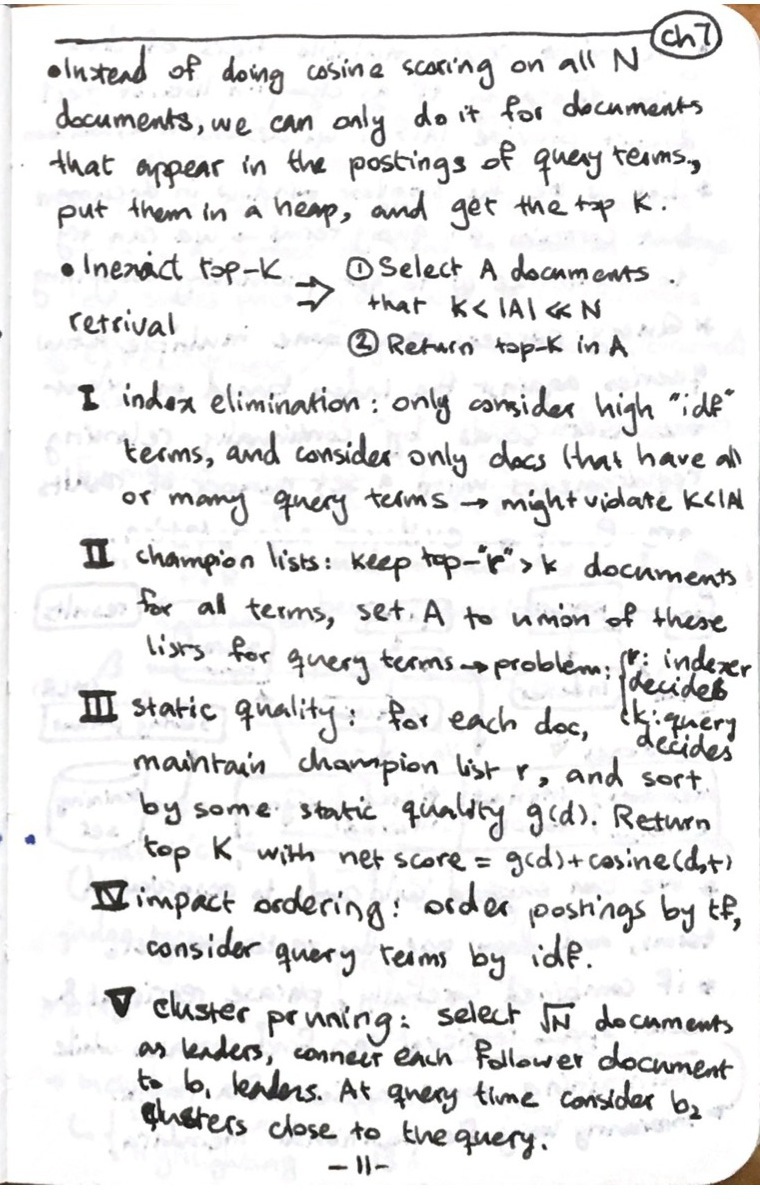 ch7
•Instead of doing cosine scoring on all N
documents, we can only do it for documents
that appear in the postings of query terms.,
put them in a heap, and get the top K.
• Inexact top-K ⇒ ① Select A documents
that K < |A| ≪ N
retrival
② Return top-K in A
I index elimination: only consider high "idf"
terms, and consider only docs that have all
or many query terms → might violate K<|A|
II champion lists: keep top-"r" > k documents
for all terms, set A to union of these
lists for query terms → problem: { r: indexer
decides
k: query
decides
III static quality: for each doc,
maintain champion list r, and sort
by some static quality g(d). Return
top K with net score = g(d)+cosine(d,t)
IV impact ordering: order postings by tf,
consider query terms by idf.
V cluster pruning: select √N documents
as leaders, connect each follower document
to b₁ leaders. At query time consider b₂
clusters close to the query.
-11-